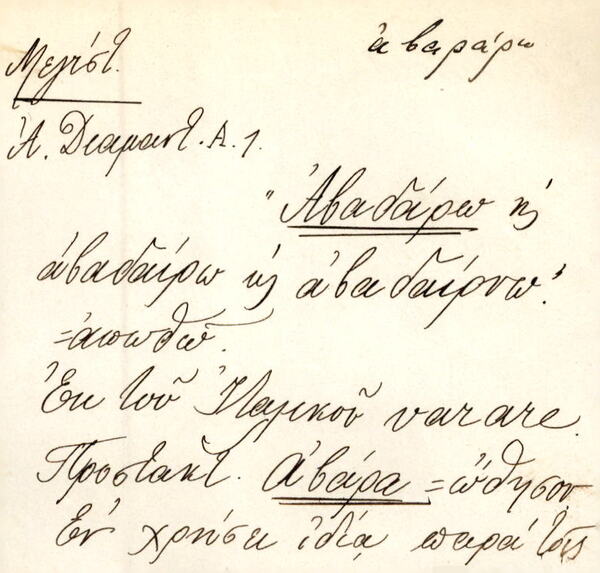 ἀβαράρω
Μεγίστ.
Ἀ. Διαμαντ. Α. 1.
"Ἀβαδάρω κ̀
ἀβαδαίρω κ̀ ἀβαδαίρνω:
=ἀπωθῶ.
Ἐκ τοῦ Ἰταλικοῦ varare.
Προστακτ. ἀβάρα =ὤθησον
Ἐν χρήσει ἰδίᾳ παρὰ τοῖς